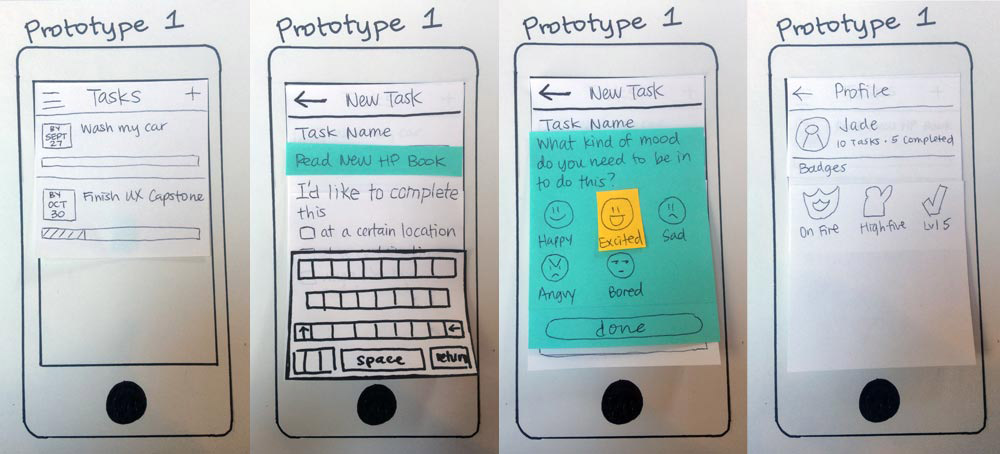 Prototype 1
Tasks +
BY
SEPT
27
Wash my car
BY
OCT
30
Finish UX Capstone
Prototype 1
New Task
Task Name
Read New HP Book
I'd like to complete
this
at a certain location
space
return
Prototype 1
New Task
Task Name
What kind of mood
do you need to be in
to do this?
Happy
Excited
Sad
Angry
Bored
done
Prototype 1
Profile
Jade
10 Tasks · 5 Completed
Badges
On Fire
High five
Lvl 5